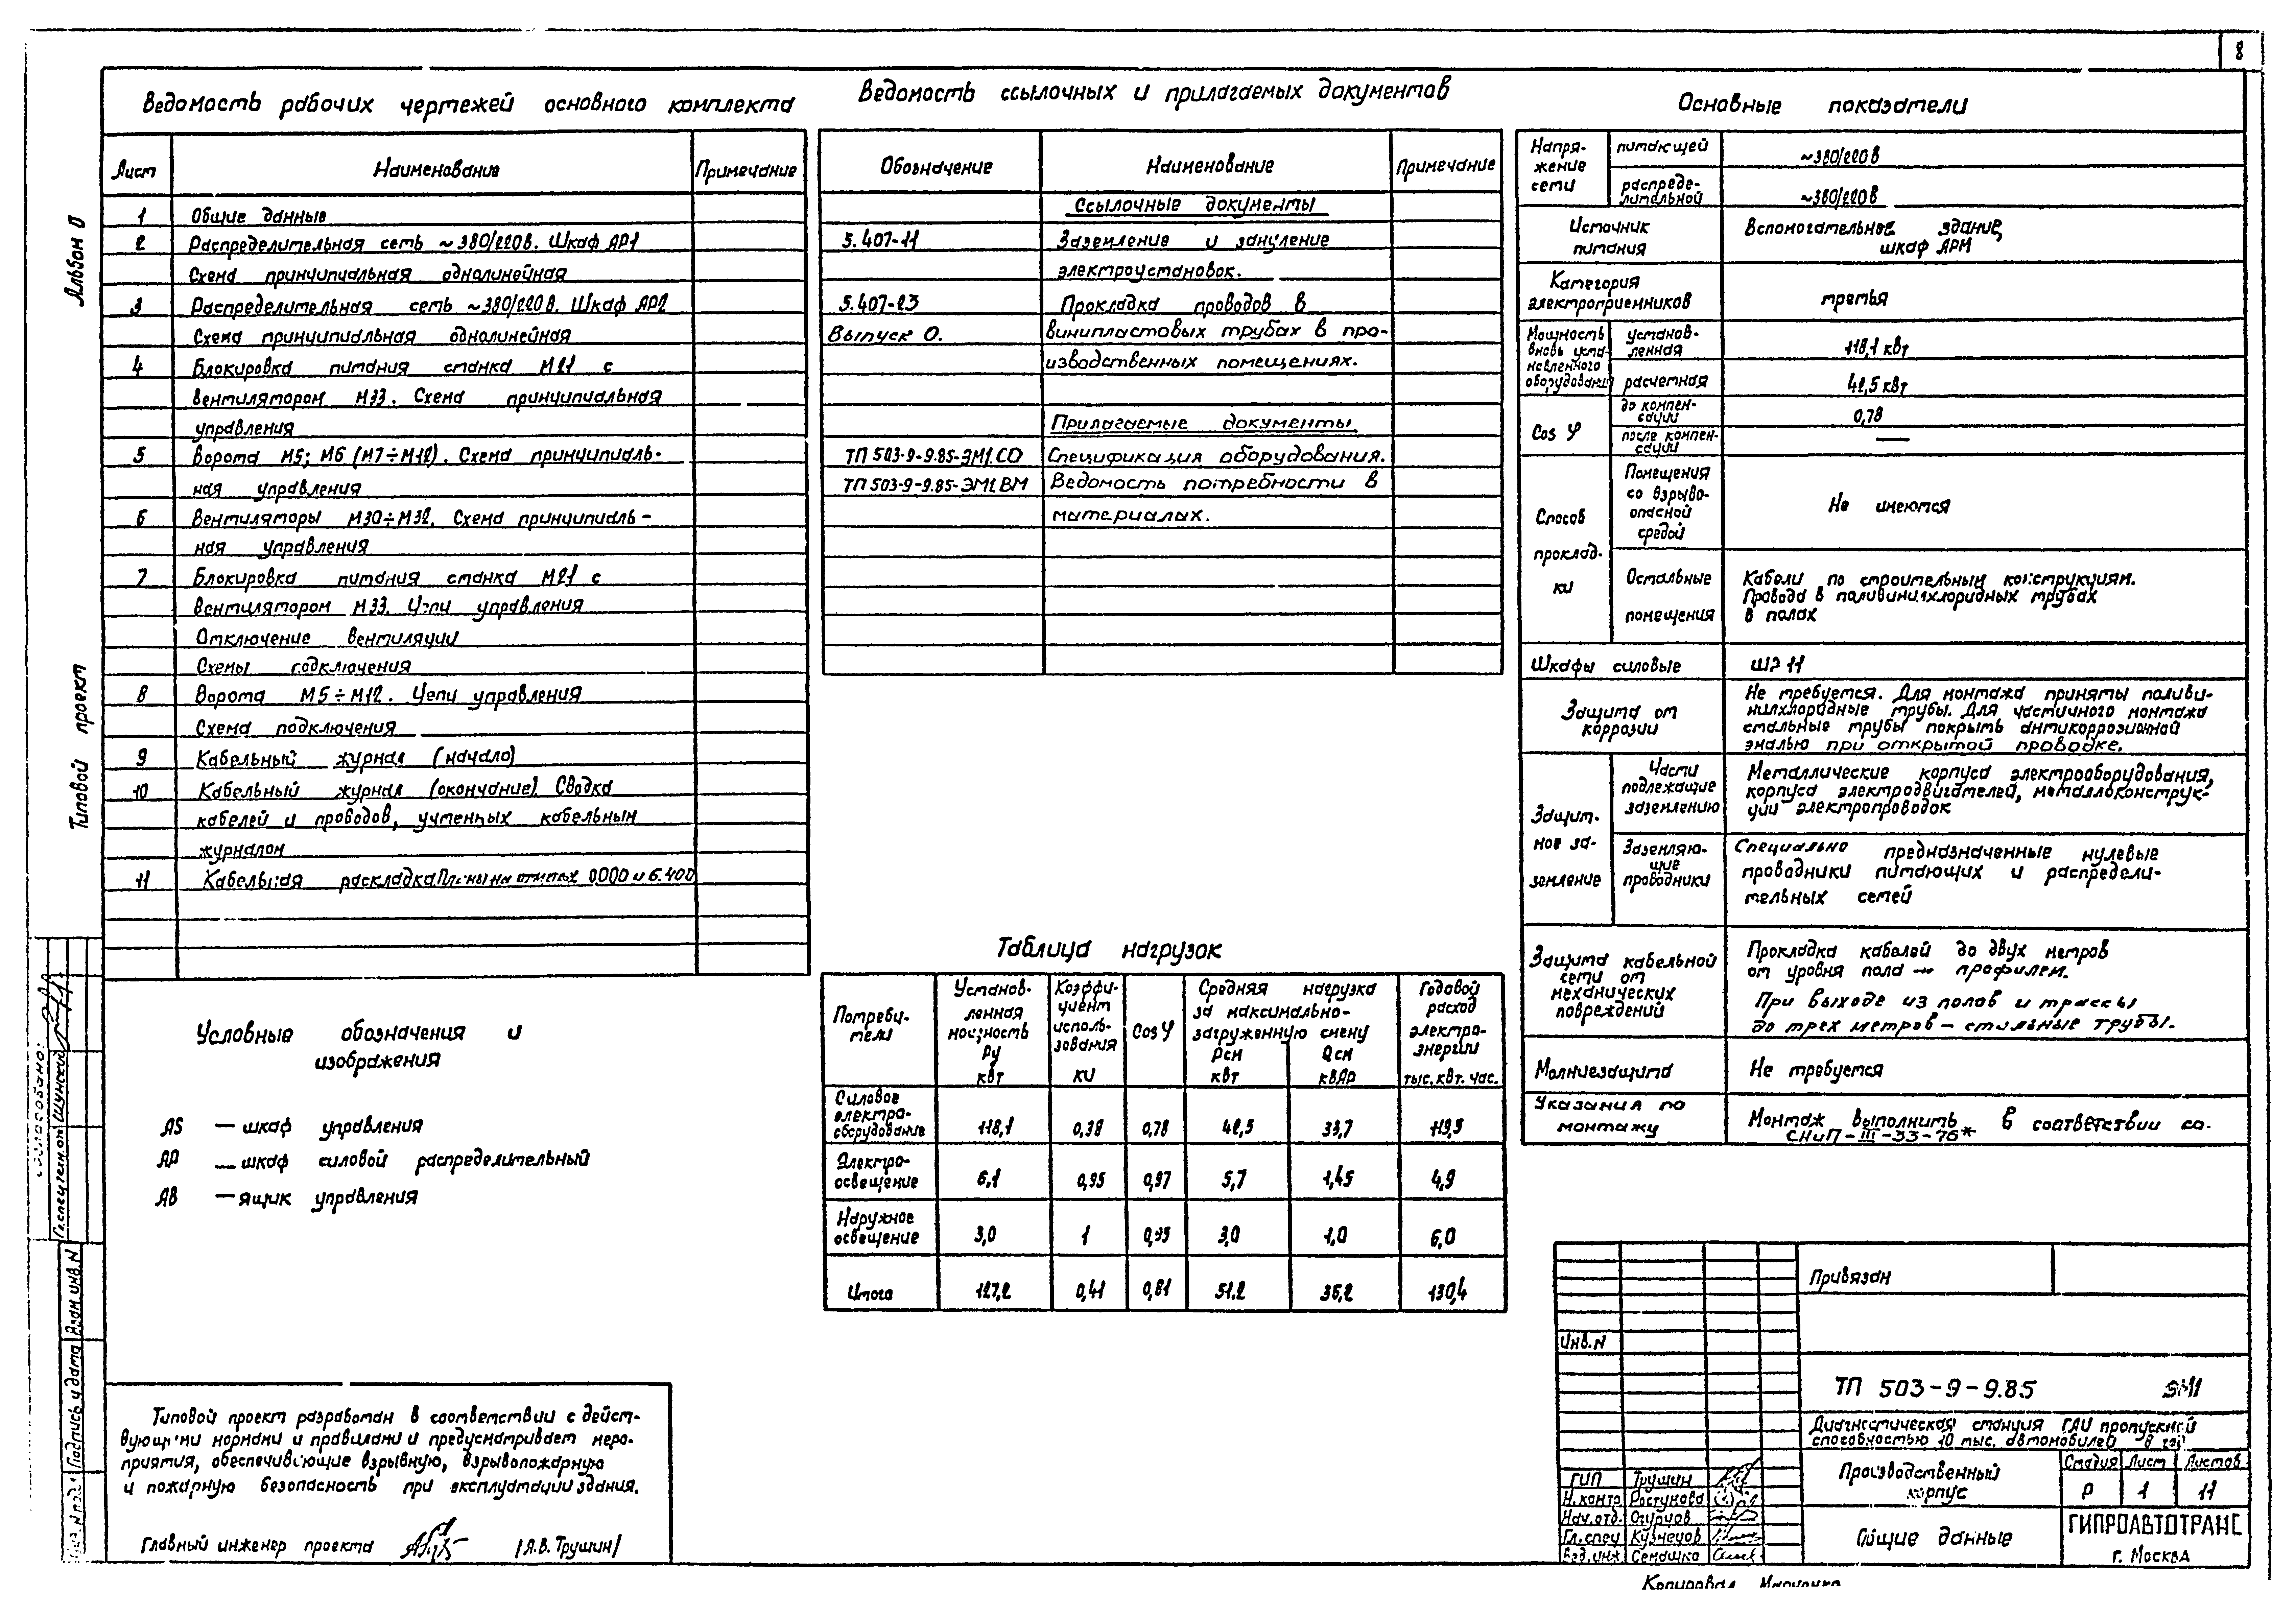 8
Альбом II
Типовой проект
Ведомость рабочих чертежей основного комплекта
Лист Наименование Примечание
1 Общие данные
2 Распределительная сеть ~380/220В. Шкаф АР1
Схема принципиальная однолинейная
3 Распределительная сеть ~380/220В. Шкаф АР2
Схема принципиальная однолинейная
4 Блокировка питания станка М21 с
вентилятором М33. Схема принципиальная
управления
5 Ворота М5; М6 (М7÷М12). Схема принципиаль-
ная управления
6 Вентиляторы М30÷М32. Схема принципиаль-
ная управления
7 Блокировка питания станка М21 с
Вентилятором М33. Цепи управления
Отключение вентиляции
Схемы подключения
8 Ворота М5÷М12. Цепи управления
Схема подключения
9 Кабельный журнал (начало)
10 Кабельный журнал (окончание). Сводка
кабелей и проводов, учтенных кабельным
журналом
11 Кабельная раскладка Планы на отметках 0.000 и 6.400
Условные обозначения и
изображения
AS — шкаф управления
АР — шкаф силовой распределительный
АВ — ящик управления
Типовой проект разработан в соответствии с дейст-
вующими нормами и правилами и предусматривает меро-
приятия, обеспечивающие взрывную, взрывопожарную
и пожарную безопасность при эксплуатации здания.
Главный инженер проекта /А.В. Трушин/
Ведомость ссылочных и прилагаемых документов
Обозначение Наименование Примечание
Ссылочные документы
5.407-11 Заземление и зануление
электроустановок.
5.407-23 Прокладка проводов в
Выпуск 0. винипластовых трубах в про-
изводственных помещениях.
Прилагаемые документы
ТП 503-9-9.85-ЭМ1.СО Спецификация оборудования.
ТП 503-9-9.85-ЭМ1.ВМ Ведомость потребности в
материалах.
Таблица нагрузок
Потреби-
тели
Установ-
ленная
мощность
Ру
квт
Коэффи-
циент
исполь-
зования
КИ
Cos φ
Средняя нагрузка
за максимально-
загруженную смену
Рсм Qсм
квт квАр
Годовой
расход
электро-
энергии
тыс. квт. час.
Силовое
электро-
оборудование 118,1 0,38 0,78 42,5 33,7 119,5
Электро-
освещение 6,1 0,95 0,97 5,7 1,45 4,9
Наружное
освещение 3,0 1 0,95 3,0 1,0 6,0
Итого 127,2 0,41 0,81 51,2 36,2 130,4
Основные показатели
Напря-
жение
сети
питающей ~380/220В
распреде-
лительной ~380/220В
Источник
питания
Вспомогательное здание,
шкаф АРМ
Категория
электроприемников третья
Мощность
вновь уста-
новленного
оборудования
установ-
ленная 118,1 квт
расчетная 42,5 квт
Cos φ
до компен-
сации 0,78
после компен-
сации —
Способ
проклад-
ки
Помещения
со взрыво-
опасной
средой
Не имеются
Остальные
помещения
Кабели по строительным конструкциям.
Провода в поливинилхлоридных трубах
в полах
Шкафы силовые ШР 11
Защита от
коррозии
Не требуется. Для монтажа приняты поливи-
нилхлоридные трубы. Для частичного монтажа
стальные трубы покрыть антикоррозионной
эмалью при открытой проводке.
Защит-
ное за-
земление
Части
подлежащие
заземлению
Металлические корпуса электрооборудования,
корпуса электродвигателей, металлоконструк-
ции электропроводок
Заземляю-
щие
проводники
Специально предназначенные нулевые
проводники питающих и распредели-
тельных сетей
Защита кабельной
сети от
механических
повреждений
Прокладка кабелей до двух метров
от уровня пола — профилем.
При выходе из полов и трассы
до трех метров — стальные трубы.
Молниезащита Не требуется
Указания по
монтажу
Монтаж выполнить в соответствии со.
СНиП-III-33-76*
Привязан
Инв. N
ТП 503-9-9.85 ЭМ1
Диагностическая станция ГАИ пропускной
способностью 10 тыс. автомобилей в год
Производственный
корпус
Стадия Лист Листов
Р 1 11
Общие данные
ГИПРОАВТОТРАНС
г. Москва
ГИП Трушин
Н.контр Растунова
Нач.отд. Огурцов
Гл.спец Кузнецов
Вед.инж Семашко
Согласовано:
Гл.спец техн.от Шунский
Взам инв. N
Подпись и дата
Копировал